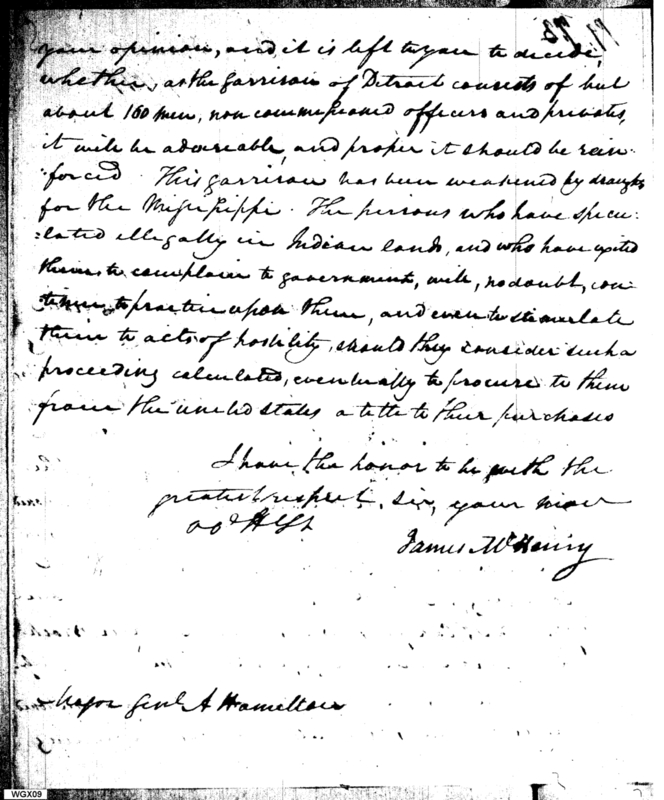 your opinion, and it is left to you to decide,
whether, as the Garrison of Detroit consists of but
about 160 men, non commissioned officers and privates,
it will be adviseable, and proper it should be rein-
:forced. This garrison has been weakened by draughts
for the Missisippi. The persons who have specu:
:lated illegally in Indian lands, and who have excited
them to complain to government, will, no doubt, con-
tinue to practice upon them, and even to stimulate
them to acts of hostility, should they consider such a
proceeding calculated, eventually to procure to them
from the united states a title to their purchases
I have the honor to be with the
greatest respect, Sir, your most
ob^d H St
James McHenry
Major Genl A Hamilton
WGX09